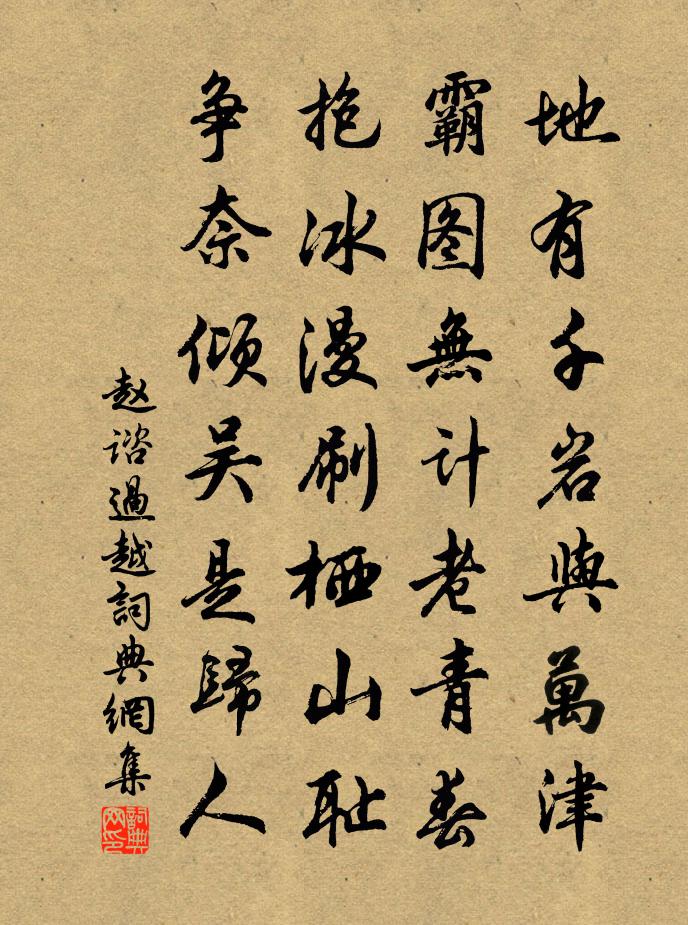 地有千岩與萬津
霸图無計老青春
抱冰漫刷栖山耻
争奈倾吴是歸人
赵谘過越詞典網集
詞典网印